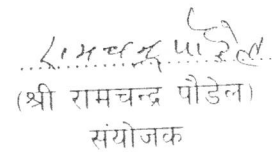 रामचन्द्र पौडेल
(श्री रामचन्द्र पौडेल)
संयोजक